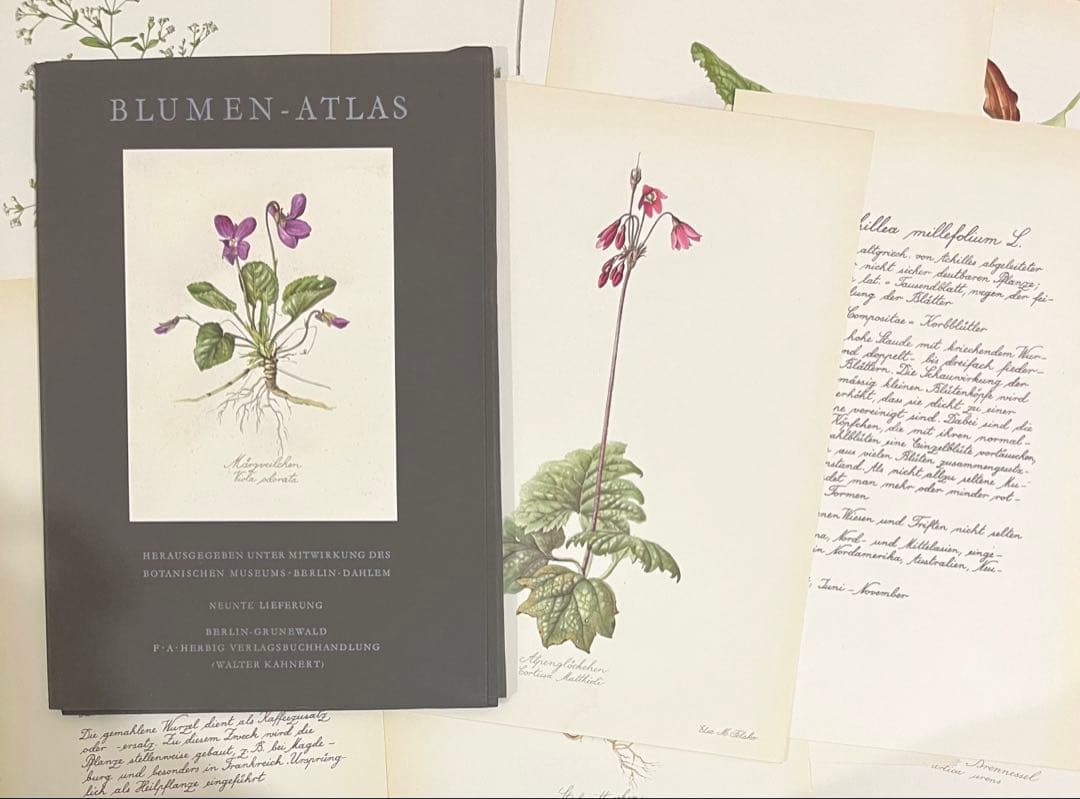 BLUMEN-ATLAS
Märzveilchen
Viola odorata
HERAUSGEGEBEN UNTER MITWIRKUNG DES
BOTANISCHEN MUSEUMS·BERLIN·DAHLEM
NEUNTE LIEFERUNG
BERLIN-GRUNEWALD
F·A·HERBIG VERLAGSBUCHHANDLUNG
(WALTER KAHNERT)
Alpenglöckchen
Cortusa Matthioli
Else M. Felsko
hillea millefolium L.
altgriech. von Achilles abgeleiteter
nicht sicher deutbaren Pflanze;
lat. = Tausendblatt, wegen der fei-
lung der Blätter
Compositae = Korbblütler
hohe Staude mit kriechendem Wur-
nd doppelt- bis dreifach fieder-
Blättern. Die Schauwirkung der
mässig kleinen Blütenköpfe wird
erhöht, dass sie dicht zu einer
ne vereinigt sind. Dabei sind die
Köpfchen, die mit ihren normal-
ahlblüten eine Einzelblüte vortäuschen,
aus vielen Blüten zusammengesetz-
nstand. Als nicht allzu seltene Mu-
det man mehr oder minder rot-
Formen
nen Wiesen und Triften nicht selten
na, Nord- und Mittelasien, einge-
in Nordamerika, Australien, Neu-
Juni - November
Die gemahlene Wurzel dient als Kaffeezusatz
oder -ersatz. Zu diesem Zweck wird die
Pflanze stellenweise gebaut, z. B. bei Magde-
burg und besonders in Frankreich. Ursprüng-
lich als Heilpflanze eingeführt
Brennessel
urtica urens